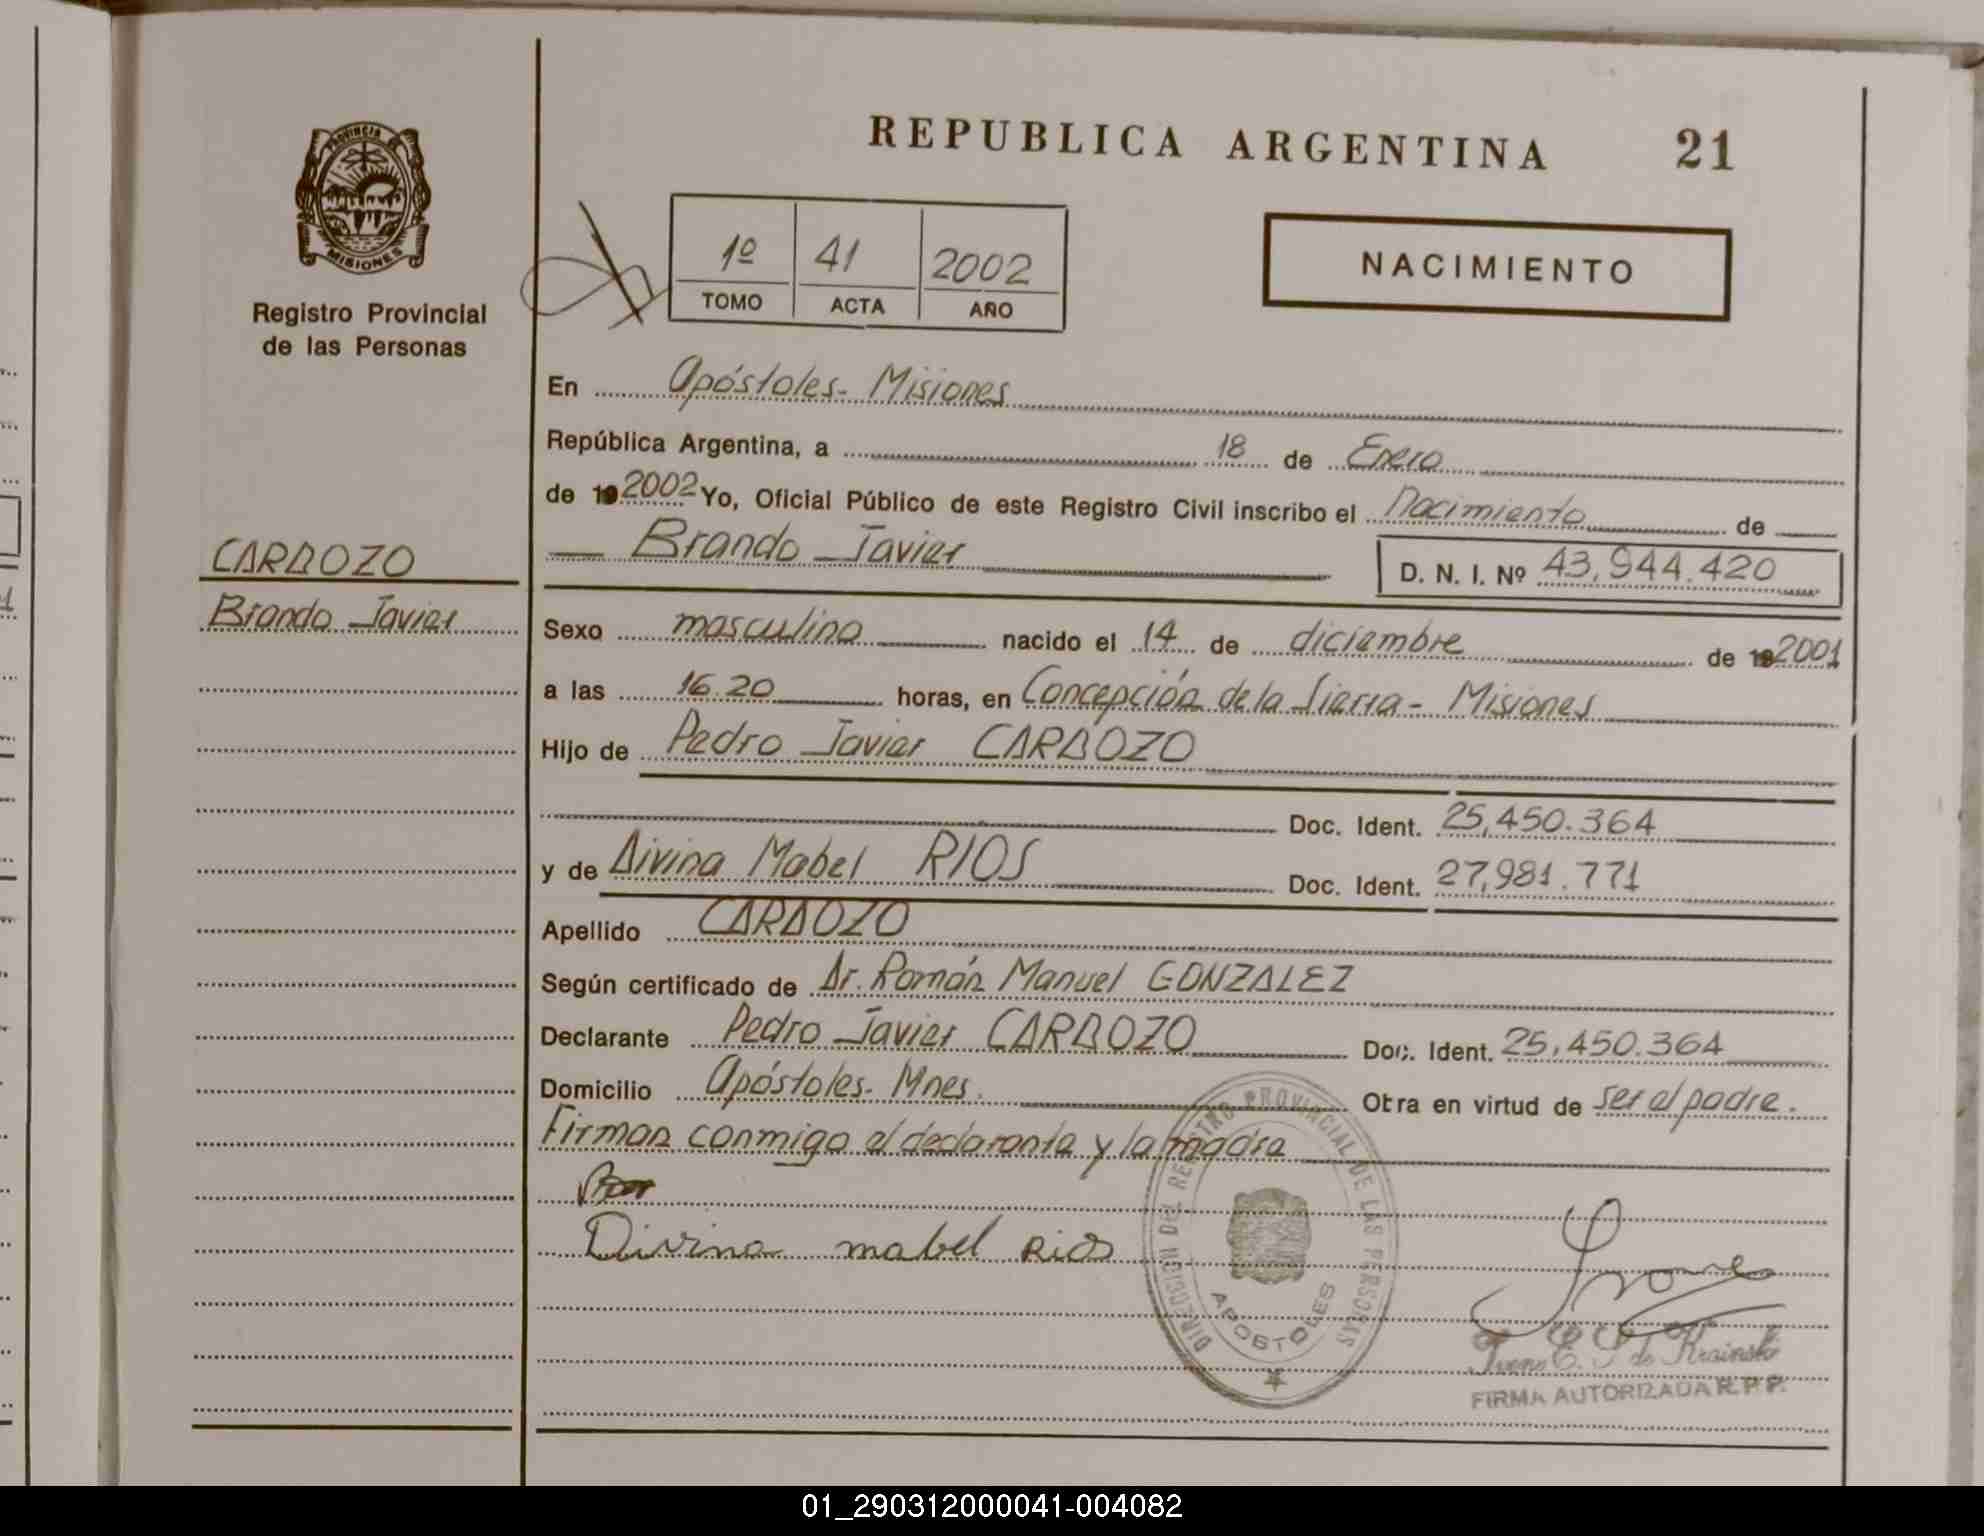 REPUBLICA ARGENTINA 21
PROVINCIA DE
MISIONES
Registro Provincial
de las Personas
1º 41 2002
TOMO ACTA AÑO
NACIMIENTO
En Apóstoles- Misiones
República Argentina, a 18 de Enero
de 19 2002 Yo, Oficial Público de este Registro Civil inscribo el Nacimiento de
Brando Javier D. N. I. Nº 43,944.420
CARDOZO
Brando Javier
Sexo masculino nacido el 14 de diciembre de 19 2001
a las 16.20 horas, en Concepción de la Sierra - Misiones
Hijo de Pedro Javier CARDOZO
Doc. Ident. 25,450.364
y de Divina Mabel RIOS Doc. Ident. 27,981.771
Apellido CARDOZO
Según certificado de Dr. Román Manuel GONZALEZ
Declarante Pedro Javier CARDOZO Doc. Ident. 25,450.364
Domicilio Apóstoles- Mnes. Otra en virtud de ser el padre.
Firman conmigo el declarante y la madre
Divina mabel Rios
DIRECCION DEL REGISTRO PROVINCIAL DE LAS PERSONAS
APOSTOLES
de Krainski
FIRMA AUTORIZADA R.P.P.
01_290312000041-004082